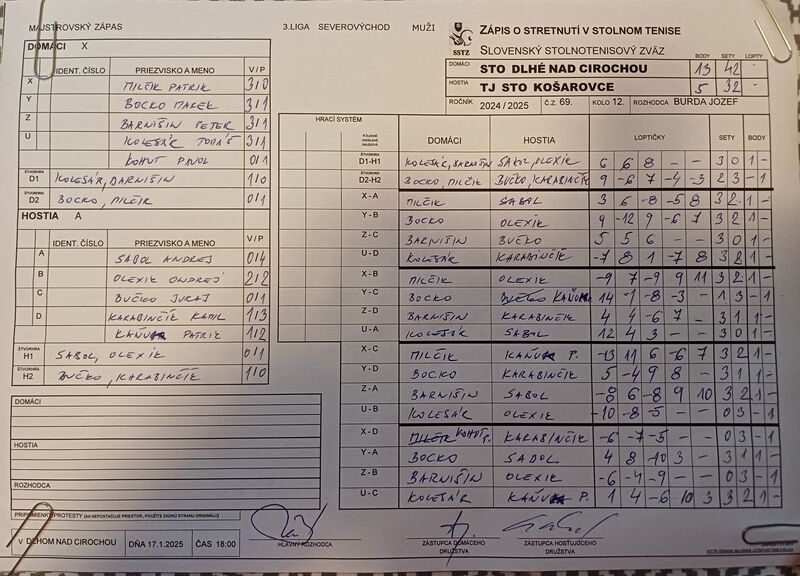 MAJSTROVSKÝ ZÁPAS
3.LIGA SEVEROVÝCHOD MUŽI
SSTZ
ZÁPIS O STRETNUTÍ V STOLNOM TENISE
SLOVENSKÝ STOLNOTENISOVÝ ZVÄZ
BODY SETY LOPTY
DOMÁCI STO DLHÉ NAD CIROCHOU 13 42 -
HOSTIA TJ STO KOŠAROVCE 5 32 -
ROČNÍK 2024/2025 Č.Z. 69. KOLO 12. ROZHODCA BURDA JOZEF
DOMÁCI X
IDENT. ČÍSLO PRIEZVISKO A MENO V/P
X MILČÍK PATRIK 3/0
Y BOCKO MAREK 3/1
Z BARNIŠIN PETER 3/1
U KOLESÁR TOMÁŠ 3/1
KOHUT PAVOL 0/1
ŠTVORHRA D1 KOLESÁR, BARNIŠIN 1/0
ŠTVORHRA D2 BOCKO, MILČÍK 0/1
HOSTIA A
IDENT. ČÍSLO PRIEZVISKO A MENO V/P
A SABOL ANDREJ 0/4
B OLEXIK ONDREJ 2/2
C BUČKO JURAJ 0/1
D KARABINČÍK KAMIL 1/3
PATRIK 1/2
ŠTVORHRA H1 SABOL, OLEXIK 0/1
ŠTVORHRA H2 BUČKO, KARABINČÍK 1/0
DOMÁCI
HOSTIA
ROZHODCA
PRIPOMIENKY/PROTESTY (AK NEPOSTAČUJE PRIESTOR, POUŽITE ZADNÚ STRANU ORIGINÁLU)
HRACÍ SYSTÉM
DOMÁCI HOSTIA LOPTIČKY SETY BODY
ŠTVORHRA D1-H1 KOLESÁR, BARNIŠIN SABOL, OLEXIK 6 6 8 - - 3 0 1 -
ŠTVORHRA D2-H2 BOCKO, MILČÍK BUČKO, KARABINČÍK 9 -6 7 -4 -3 2 3 - 1
X-A MILČÍK SABOL 3 6 -8 -5 8 3 2 1 -
Y-B BOCKO OLEXIK 9 -12 9 -6 7 3 2 1 -
Z-C BARNIŠIN BUČKO 5 5 6 - - 3 0 1 -
U-D KOLESÁR KARABINČÍK -7 8 1 -7 8 3 2 1 -
X-B MILČÍK OLEXIK -9 7 -9 9 11 3 2 1 -
Y-C BOCKO 14 -1 -8 -3 - 1 3 - 1
Z-D BARNIŠIN KARABINČÍK 4 4 -6 7 - 3 1 1 -
U-A KOLESÁR SABOL 12 4 3 - - 3 0 1 -
X-C MILČÍK P. -13 11 6 -6 7 3 2 1 -
Y-D BOCKO KARABINČÍK 5 -4 9 8 - 3 1 1 -
Z-A BARNIŠIN SABOL -8 6 -8 9 10 3 2 1 -
U-B KOLESÁR OLEXIK -10 -8 -5 - - 0 3 - 1
X-D MILČÍK KOHUT P. KARABINČÍK -6 -7 -5 - - 0 3 - 1
Y-A BOCKO SABOL 4 8 -10 3 - 3 1 1 -
Z-B BARNIŠIN OLEXIK -6 -4 -9 - - 0 3 - 1
U-C KOLESÁR P. 1 4 -6 -10 3 3 2 1 -
V DLHOM NAD CIROCHOU DŇA 17.1.2025 ČAS 18:00
HLAVNÝ ROZHODCA
ZÁSTUPCA DOMÁCEHO DRUŽSTVA
ZÁSTUPCA HOSŤUJÚCEHO DRUŽSTVA